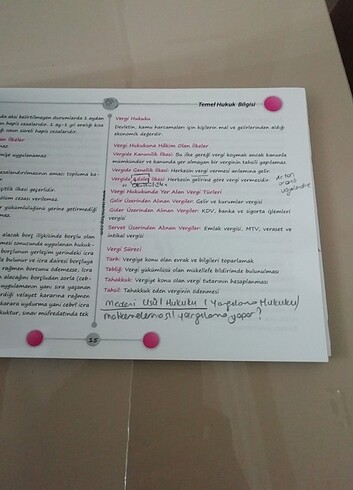 da aksi belirtilmeyen durumlarda 1 aydan
hapis cezalarıdır. 1 ay-1 yıl aralığı kısa
uzun süreli hapis cezalarıdır.
İlkeler
uygulanamaz
cezalandırılmanın amacı; topluma
ilkesi geçerlidir.
cezası verilemez
yükümlülüğünü yerine getirmediği
alacak borç ilişkisinde borçlu olan
sonucunda uygulanan hukuk-
borçlunun yerleşim yerindeki icra
bulunur ve icra dairesi borçluya
rağmen borcunu ödemezse, icra
alacağını borçludan zorla (ceb-
uygulamanın yanı sıra yaşanan
velayet kararına rağmen
karara uydurma yani cebri icra
sınav müfredatında tek
Temel Hukuk Bilgisi
Vergi Hukuku
Devletin, kamu harcamaları için kişilerin mal ve gelirlerinden aldığı
ekonomik değerdir.
Vergi Hukukuna Hâkim Olan İlkeler
Vergide Kanunilik İlkesi: Bu ilke gereği vergi koymak ancak kanunla
mümkündür ve kanunda yer almayan bir verginin tahsili yapılamaz.
Vergide Genellik İlkesi: Herkesin vergi vermesi anlamına gelir
Vergide Adalet İlkesi: Herkesin gelirine göre vergi vermesidir
Vergi Hukukunda Yer Alan Vergi Türleri
Gelir Üzerinden Alınan Vergiler: Gelir ve kurumlar vergisi
Gider Üzerinden Alınan Vergiler: KDV, banka ve sigorta işlemleri
vergisi
Servet Üzerinden Alınan Vergiler: Emlak vergisi, MTV, veraset ve
intikal vergisi
Vergi Süreci
Tarh: Vergiye konu olan evrak ve bilgileri toparlamak
Tebliğ: Vergi yükümlüsü olan mükellefe bildirimde bulunulması
Tahakkuk: Vergiye konu olan vergi tutarının hesaplanması
Tahsil: Tahakkuk eden verginin ödenmesi
Medeni Usûl Hukuku (Yargılama Hukuku)
mahkemeler nasıl yargılama yapar?
15